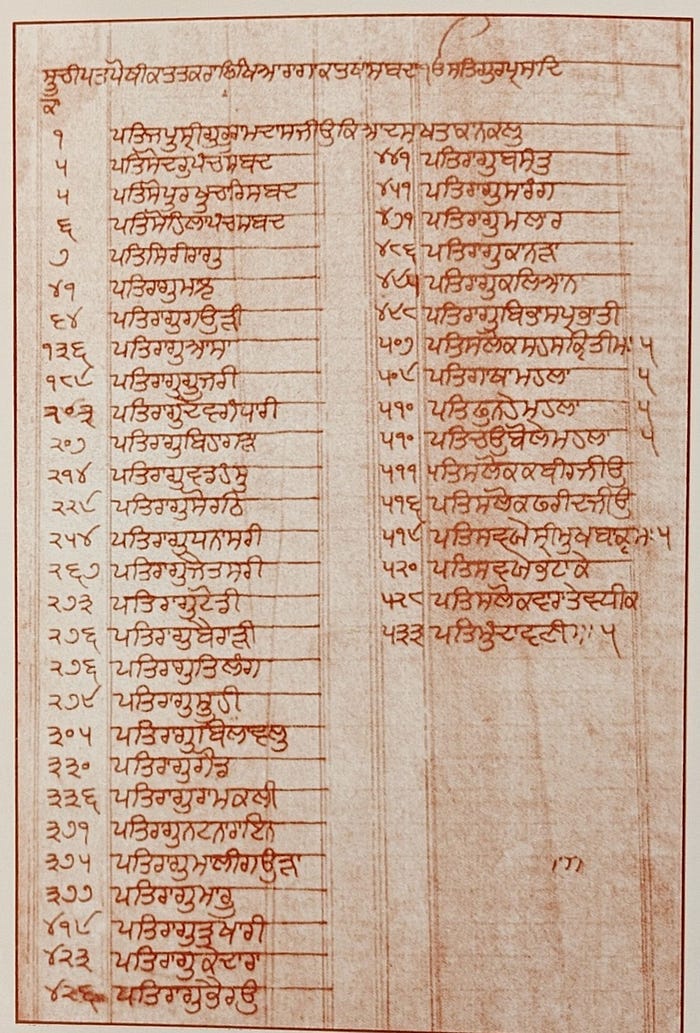 ਸੂਚੀਪਤ੍ਰ ਪੋਥੀ ਕਾ ਤਤਕਰਾ ੴ ਸਤਿਗੁਰ ਪ੍ਰਸਾਦਿ
ਕਾ
੧ ਪਤਿ ਜਪੁ ਸ੍ਰੀ ਗੁਰੂ ਰਾਮਦਾਸ ਜੀਉ ਕਿਆ ਦਸਖਤਾ ਕਾ ਨਕਲੁ
੫ ਪਤਿ ਸੋਦਰੁ ਪੰਚ ਸਬਦ
੫ ਪਤਿ ਸੋਪੁਰਖੁ ਚਾਰਿ ਸਬਦ
੬ ਪਤਿ ਸੋਹਿਲਾ ਪੰਚ ਸਬਦ
੭ ਪਤਿ ਸਿਰੀਰਾਗੁ
੪੧ ਪਤਿ ਰਾਗੁ ਮਾਝ
੬੪ ਪਤਿ ਰਾਗੁ ਗਉੜੀ
੧੩੬ ਪਤਿ ਰਾਗੁ ਆਸਾ
੧੮੯ ਪਤਿ ਰਾਗੁ ਗੂਜਰੀ
੨੦੩ ਪਤਿ ਰਾਗੁ ਦੇਵਗੰਧਾਰੀ
੨੦੭ ਪਤਿ ਰਾਗੁ ਬਿਹਾਗੜਾ
੨੧੪ ਪਤਿ ਰਾਗੁ ਵਡਹੰਸੁ
੨੨੯ ਪਤਿ ਰਾਗੁ ਸੋਰਠਿ
੨੫੪ ਪਤਿ ਰਾਗੁ ਧਨਾਸਰੀ
੨੬੭ ਪਤਿ ਰਾਗੁ ਜੈਤਸਰੀ
੨੭੩ ਪਤਿ ਰਾਗੁ ਟੋਡੀ
੨੭੬ ਪਤਿ ਰਾਗੁ ਬੈਰਾੜੀ
੨੭੬ ਪਤਿ ਰਾਗੁ ਤਿਲੰਗ
੨੭੯ ਪਤਿ ਰਾਗੁ ਸੂਹੀ
੩੦੫ ਪਤਿ ਰਾਗੁ ਬਿਲਾਵਲੁ
੩੩੦ ਪਤਿ ਰਾਗੁ ਗੌਡ
੩੩੬ ਪਤਿ ਰਾਗੁ ਰਾਮਕਲੀ
੩੭੧ ਪਤਿ ਰਾਗੁ ਨਟਨਾਰਾਇਨ
੩੭੫ ਪਤਿ ਰਾਗੁ ਮਾਲੀਗਉੜਾ
੩੭੭ ਪਤਿ ਰਾਗੁ ਮਾਰੂ
੪੧੯ ਪਤਿ ਰਾਗੁ ਤੁਖਾਰੀ
੪੨੩ ਪਤਿ ਰਾਗੁ ਕੇਦਾਰਾ
੪੨੬ ਪਤਿ ਰਾਗੁ ਭੈਰਉ
੪੪੧ ਪਤਿ ਰਾਗੁ ਬਸੰਤੁ
੪੫੧ ਪਤਿ ਰਾਗੁ ਸਾਰੰਗ
੪੭੧ ਪਤਿ ਰਾਗੁ ਮਲਾਰ
੪੮੬ ਪਤਿ ਰਾਗੁ ਕਾਨੜਾ
੪੯੫ ਪਤਿ ਰਾਗੁ ਕਲਿਆਨ
੪੯੮ ਪਤਿ ਰਾਗੁ ਬਿਭਾਸ ਪ੍ਰਭਾਤੀ
੫੦੭ ਪਤਿ ਸਲੋਕ ਸਹਸਕ੍ਰਿਤੀ ਮਃ ੫
੫੦੯ ਪਤਿ ਗਾਥਾ ਮਹਲਾ ੫
੫੧੦ ਪਤਿ ਫੁਨਹੇ ਮਹਲਾ ੫
੫੧੦ ਪਤਿ ਚਉਬੋਲੇ ਮਹਲਾ ੫
੫੧੧ ਪਤਿ ਸਲੋਕ ਕਬੀਰ ਜੀਉ
੫੧੬ ਪਤਿ ਸਲੋਕ ਫਰੀਦ ਜੀਉ
੫੧੯ ਪਤਿ ਸਵਯੇ ਸ੍ਰੀ ਮੁਖਬਾਕ੍ਯ ਮਃ ੫
੫੨੦ ਪਤਿ ਸਵਯੇ ਭਟਾ ਕੇ
੫੨੮ ਪਤਿ ਸਲੋਕ ਵਾਰਾ ਤੇ ਵਧੀਕ
੫੩੩ ਪਤਿ ਮੁੰਦਾਵਣੀ ਮਃ ੫